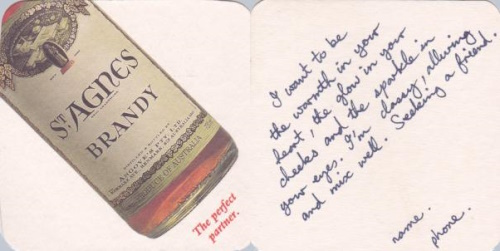 ST AGNES
BRANDY
ANGOVE'S PTY. LTD.
PRODUCE OF AUSTRALIA
The perfect
partner.
I want to be
the warmth in your
heart, the glow in your
cheeks and the sparkle in
your eyes. I'm classy, alluring
and mix well. Seeking a friend.
name.
phone.